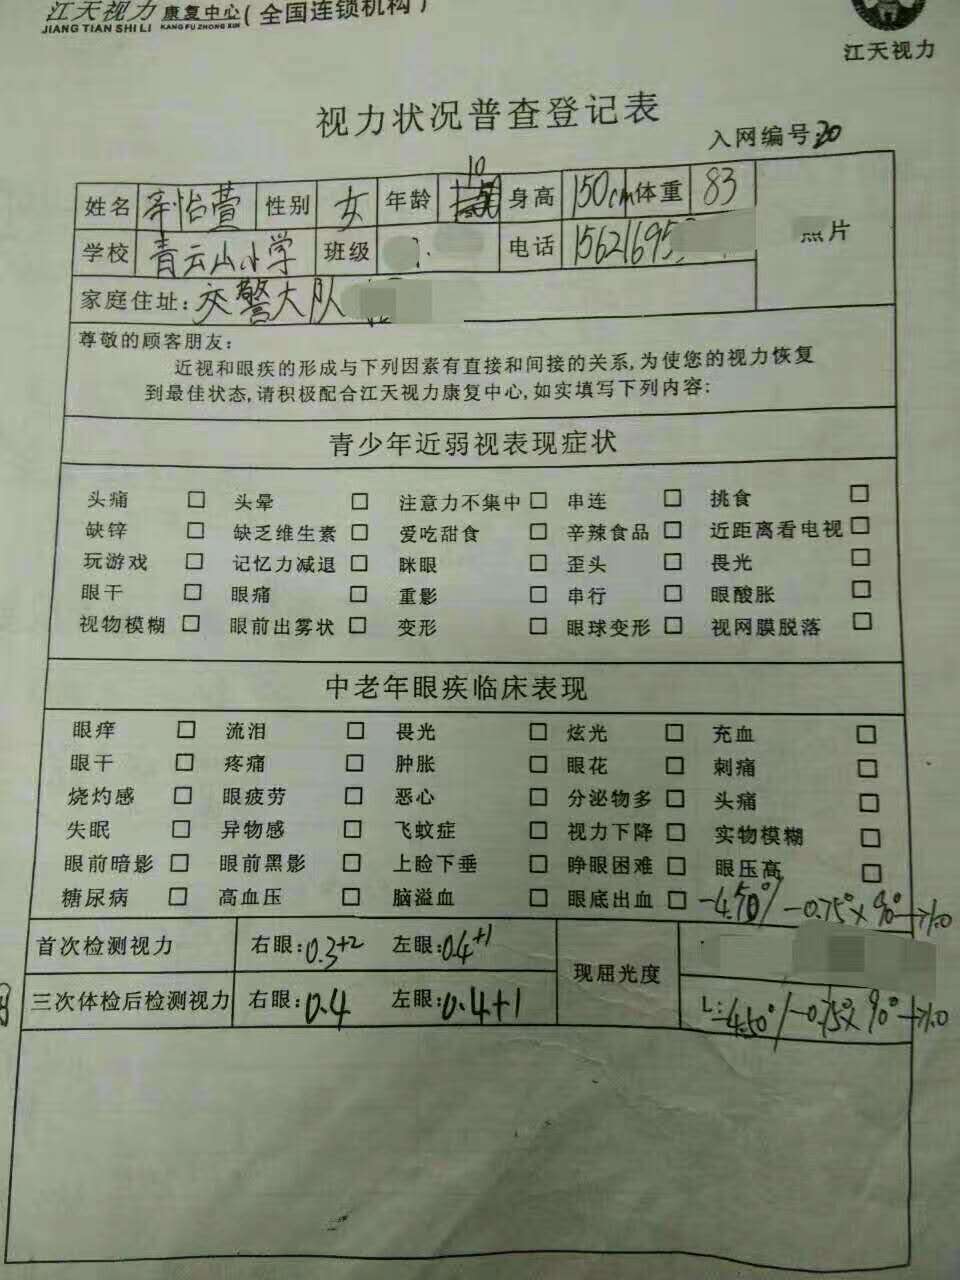 江天视力 康复中心（全国连锁机构）
JIANG TIAN SHI LI KANG FU ZHONG XIN
江天视力
视力状况普查登记表
入网编号:20
姓名 性别 女 年龄 10 身高 150cm 体重 83
学校 青云山小学 班级 电话 15621695 照片
家庭住址: 交警大队
尊敬的顾客朋友:
近视和眼疾的形成与下列因素有直接和间接的关系,为使您的视力恢复
到最佳状态,请积极配合江天视力康复中心,如实填写下列内容:
青少年近弱视表现症状
头痛 □ 头晕 □ 注意力不集中 □ 串连 □ 挑食 □
缺锌 □ 缺乏维生素 □ 爱吃甜食 □ 辛辣食品 □ 近距离看电视 □
玩游戏 □ 记忆力减退 □ 眯眼 □ 歪头 □ 畏光 □
眼干 □ 眼痛 □ 重影 □ 串行 □ 眼酸胀 □
视物模糊 □ 眼前出雾状 □ 变形 □ 眼球变形 □ 视网膜脱落 □
中老年眼疾临床表现
眼痒 □ 流泪 □ 畏光 □ 炫光 □ 充血 □
眼干 □ 疼痛 □ 肿胀 □ 眼花 □ 刺痛 □
烧灼感 □ 眼疲劳 □ 恶心 □ 分泌物多 □ 头痛 □
失眠 □ 异物感 □ 飞蚊症 □ 视力下降 □ 实物模糊 □
眼前暗影 □ 眼前黑影 □ 上睑下垂 □ 睁眼困难 □ 眼压高 □
糖尿病 □ 高血压 □ 脑溢血 □ 眼底出血 □
-4.50°/-0.75°×90°→1.0
首次检测视力 右眼:0.3+2 左眼:0.4+1 现屈光度
三次体检后检测视力 右眼:0.4 左眼:0.4+1 L:-4.50°/-0.75°×90°→1.0